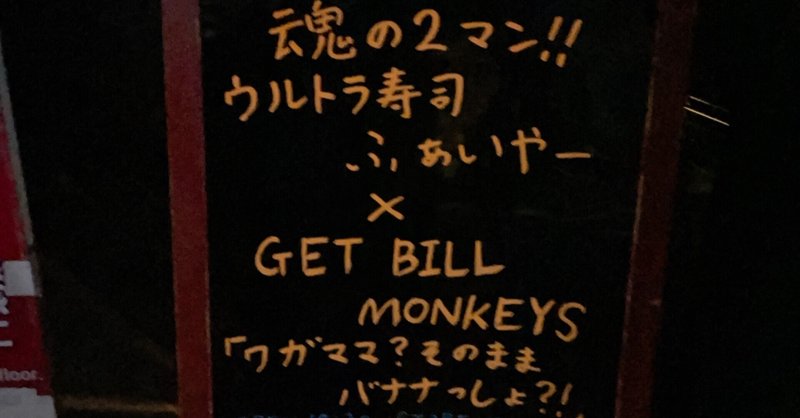 魂の2マン!!
ウルトラ寿司
ふぁいやー
×
GET BILL
MONKEYS
「ワガママ?そのまま
バナナっしょ?!
floor.